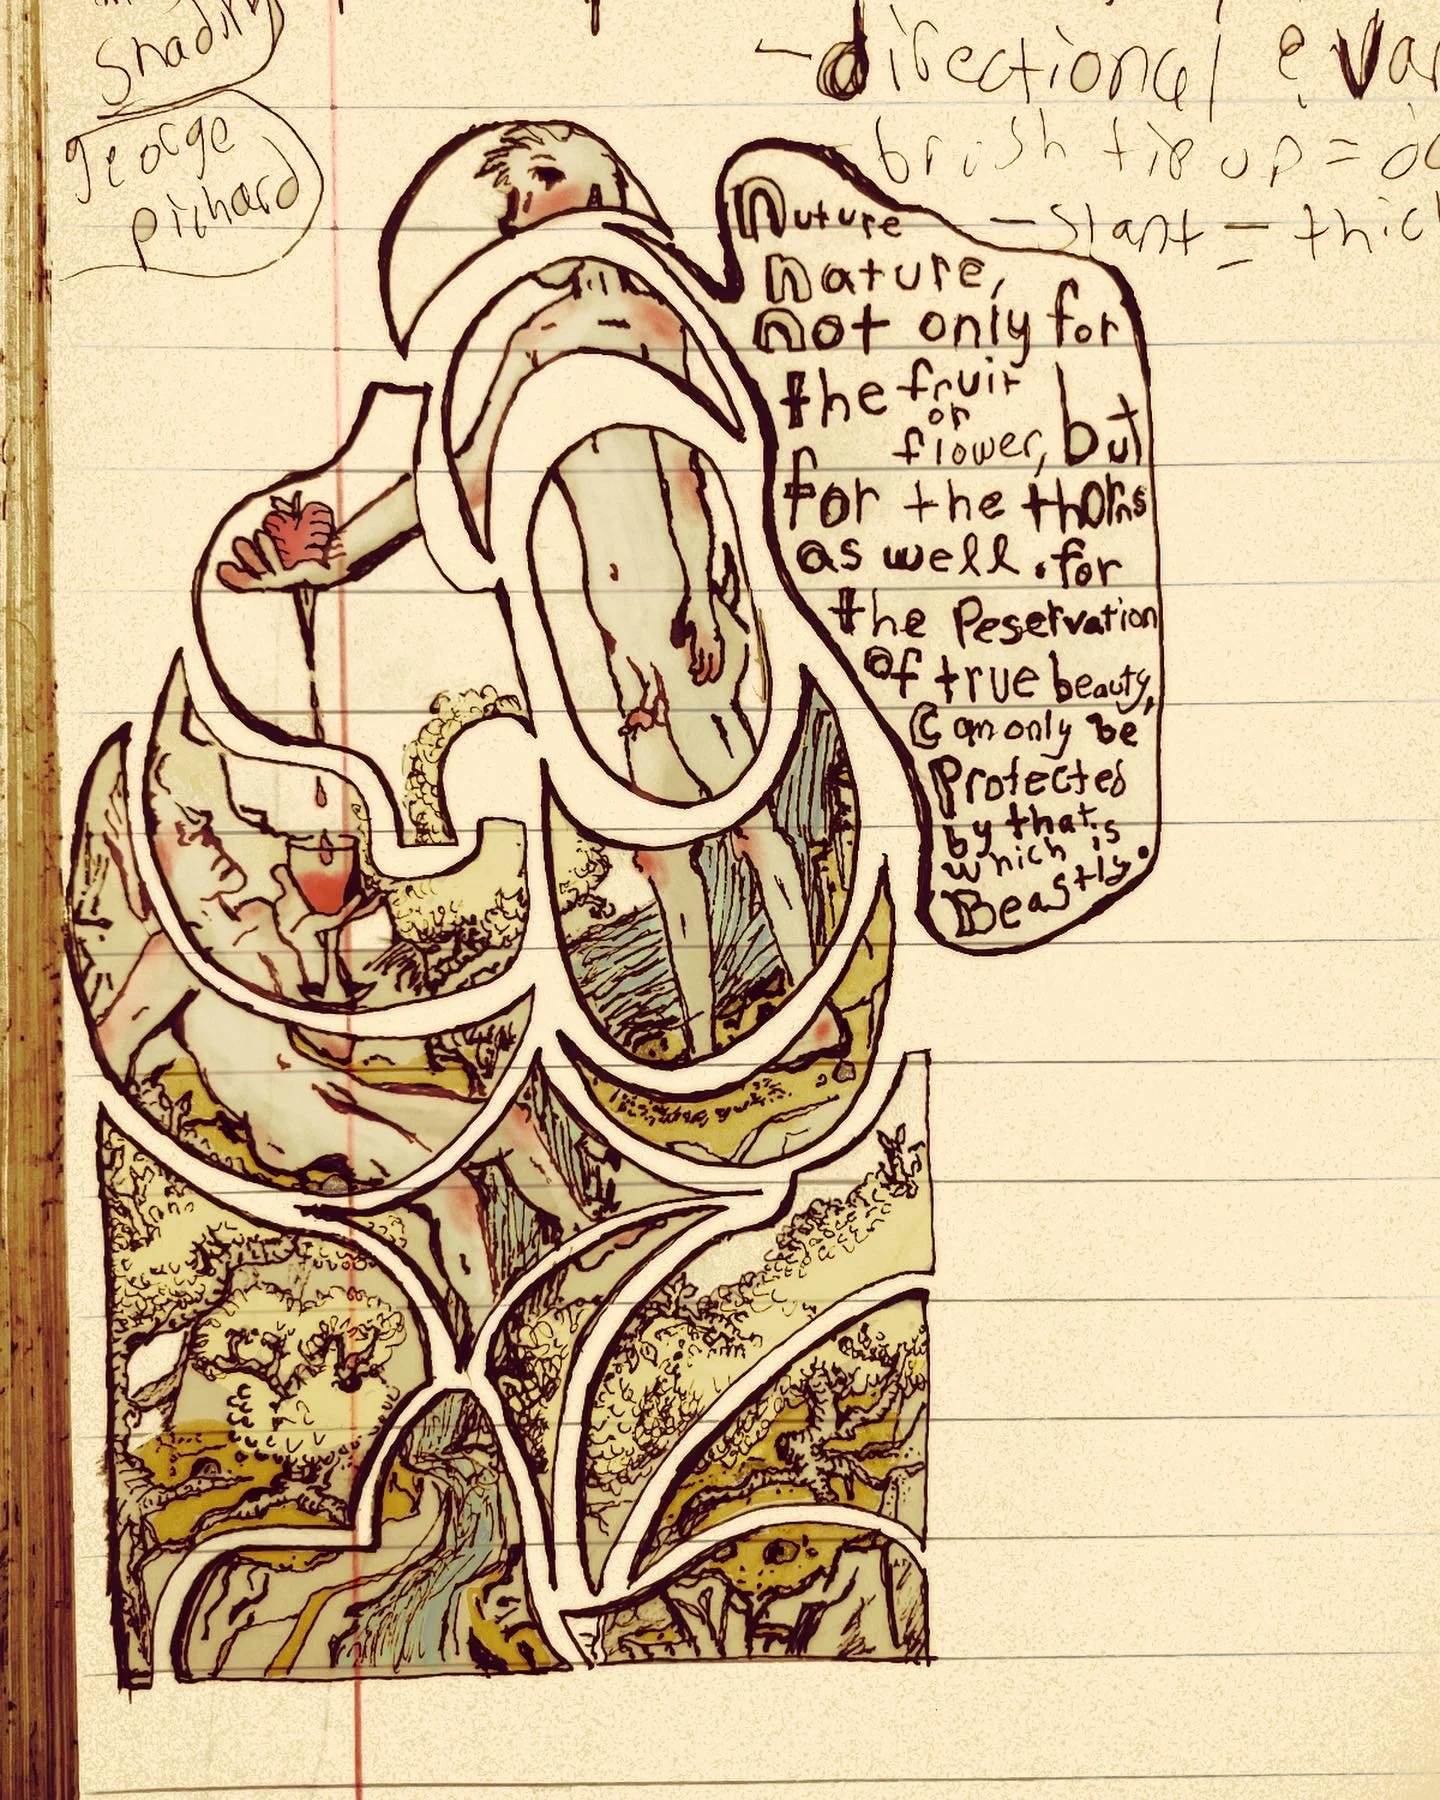 Shading
George
pichard
- directional &
brush tip up =
- slant =
Nuture
nature,
not only for
the fruit
or
flower, but
for the thorns
as well. for
the Peservation
of true beauty,
Can only be
Protected
by that
which is
Beastly.